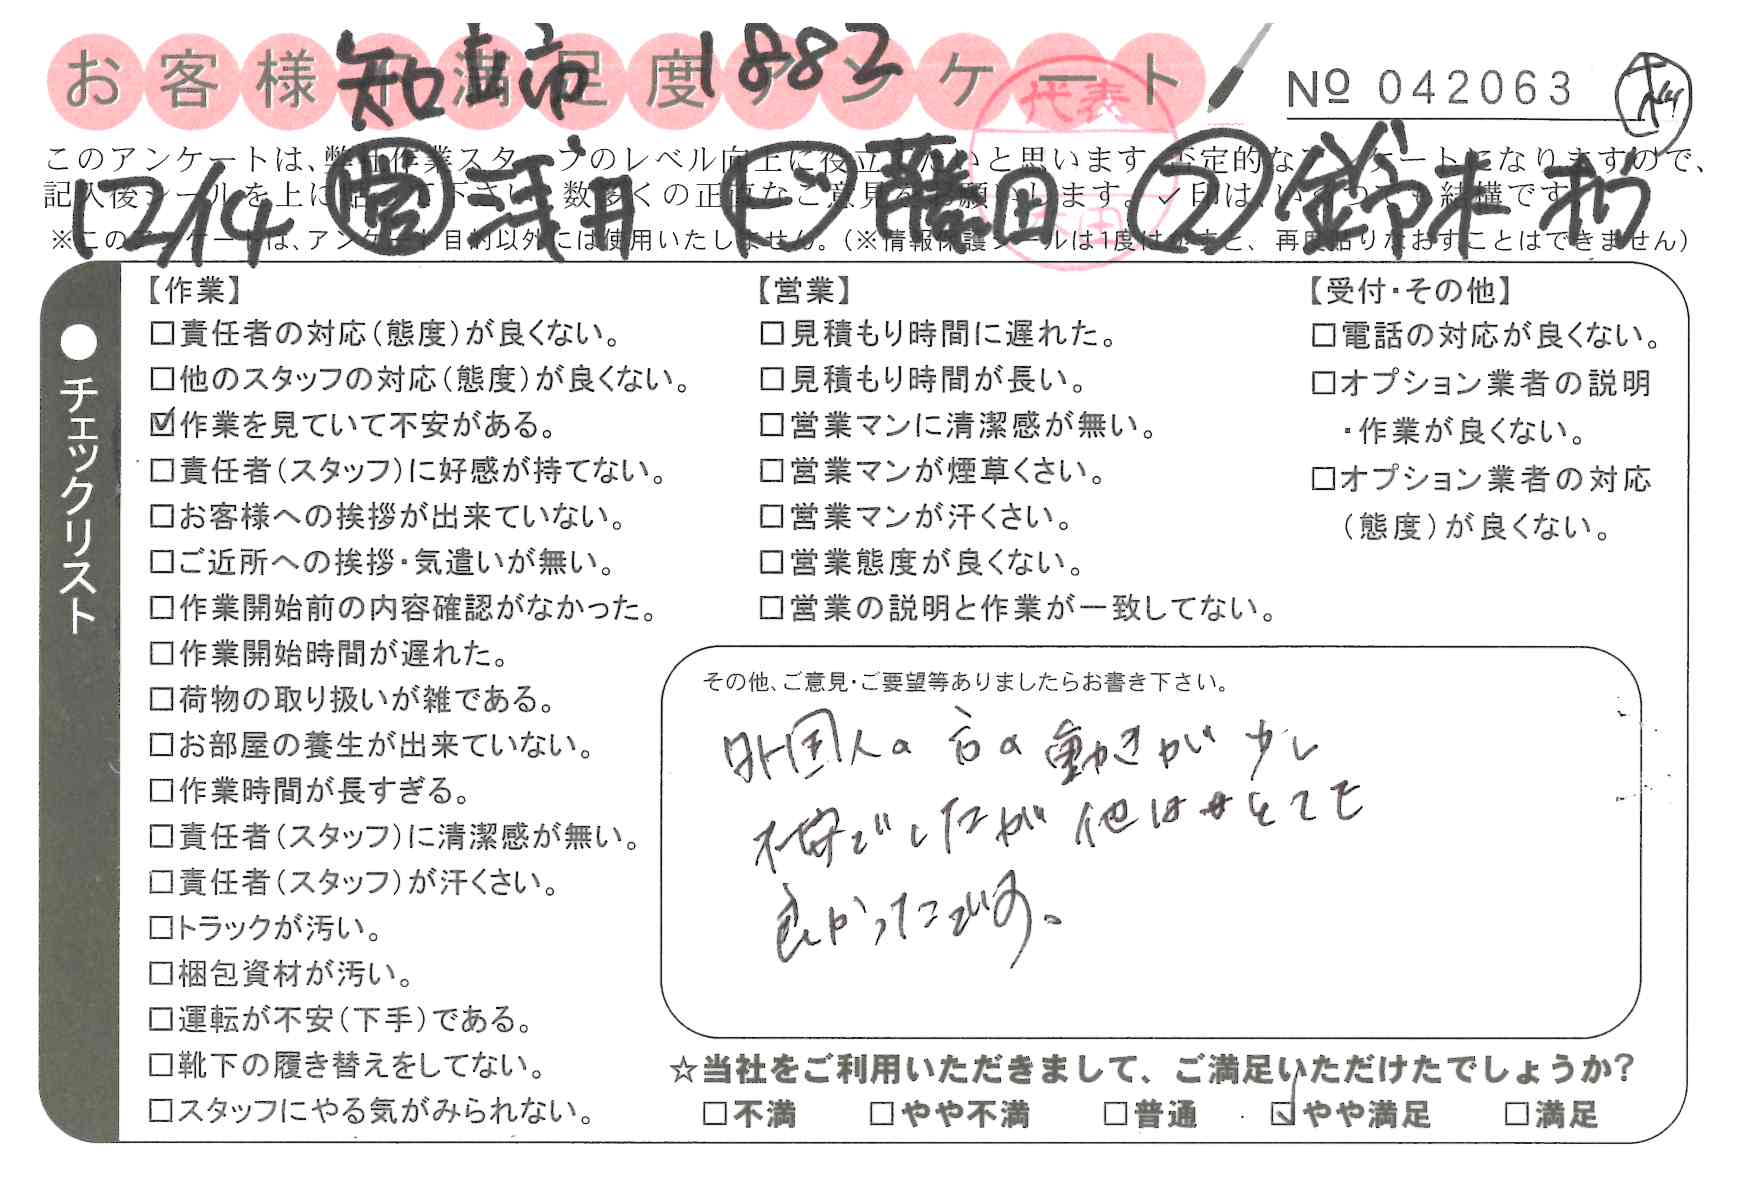 お客様 満足度アンケート
知立市 1883
№ 042063
代表
このアンケートは、弊社作業スタッフのレベル向上に役立てたいと思います。否定的なアンケートになりますので、
記入後シールを上に貼って下さい。数多くの正直なご意見をお願いします。✓印は、いくつでも結構です。
12/14 営 浅井 ド 藤田 ス 鈴木
※このアンケートは、アンケート目的以外には使用いたしません。(※情報保護シールは1度はがすと、再度貼りなおすことはできません)
●チェックリスト
【作業】
□責任者の対応(態度)が良くない。
□他のスタッフの対応(態度)が良くない。
☑作業を見ていて不安がある。
□責任者(スタッフ)に好感が持てない。
□お客様への挨拶が出来ていない。
□ご近所への挨拶・気遣いが無い。
□作業開始前の内容確認がなかった。
□作業開始時間が遅れた。
□荷物の取り扱いが雑である。
□お部屋の養生が出来ていない。
□作業時間が長すぎる。
□責任者(スタッフ)に清潔感が無い。
□責任者(スタッフ)が汗くさい。
□トラックが汚い。
□梱包資材が汚い。
□運転が不安(下手)である。
□靴下の履き替えをしてない。
□スタッフにやる気がみられない。
【営業】
□見積もり時間に遅れた。
□見積もり時間が長い。
□営業マンに清潔感が無い。
□営業マンが煙草くさい。
□営業マンが汗くさい。
□営業態度が良くない。
□営業の説明と作業が一致してない。
【受付・その他】
□電話の対応が良くない。
□オプション業者の説明
・作業が良くない。
□オプション業者の対応
(態度)が良くない。
その他、ご意見・ご要望等ありましたらお書き下さい。
外国人の方の動きが少し
不安でしたが他は
良かったです。
☆当社をご利用いただきまして、ご満足いただけたでしょうか?
□不満 □やや不満 □普通 ☑やや満足 □満足